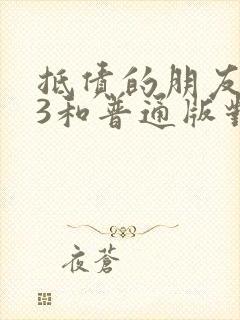 抵债的朋友
3和普通版對
夜蒼